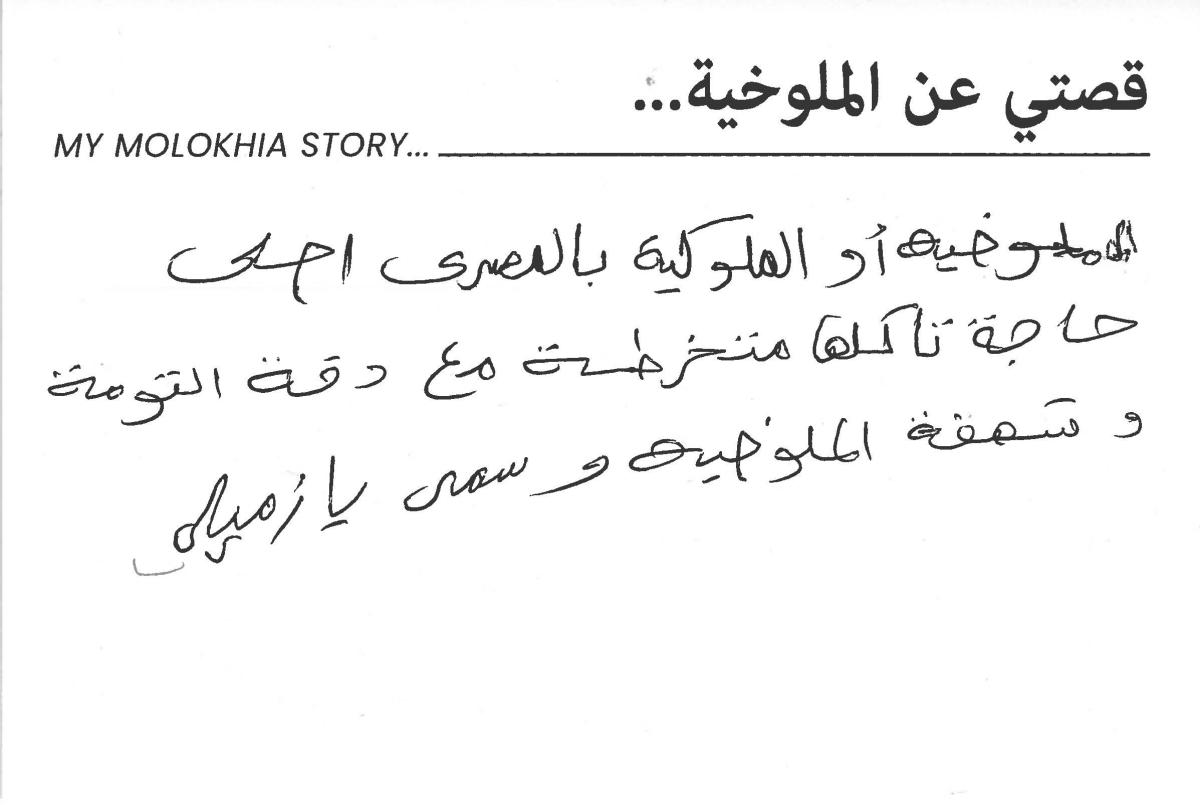 قصتي عن الملوخية...
MY MOLOKHIA STORY...
الملوخيه أو الملوكية بالمصرى احلى
حاجة تاكلها متخرطة مع دقة التومة
و شهقة الملوخيه و سمى يا زميلى